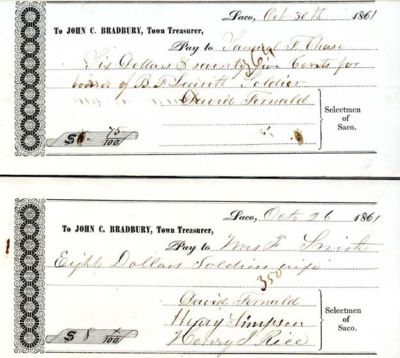 Saco, Oct 30th 1861
To JOHN C. BRADBURY, Town Treasurer,
Pay to Samuel F. Chase
Six Dollars & seventy five Cents for
of B. F. Soldier
David Fernald
Selectmen
of
Saco.
$6. 75/100
Saco, Octo 26 1861
To JOHN C. BRADBURY, Town Treasurer,
Pay to Mrs F. Smith
Eight Dollars Soldiers wife
350
David Fernald
Henry Simpson
Henry J. Rice
Selectmen
of
Saco.
$ 8 /100